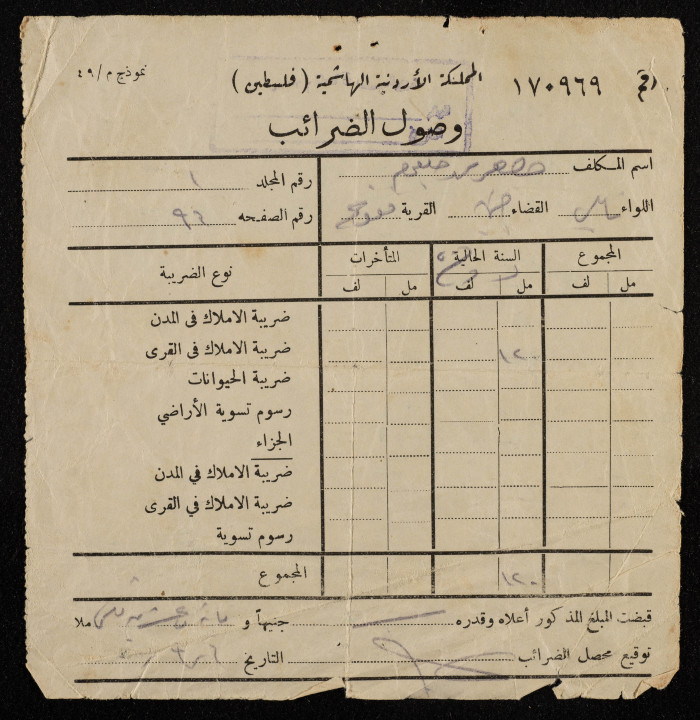 رقم ١٧٠٩٦٩ المملكة الأردنية الهاشمية ( فلسطين ) نموذج م/٤٩
وصول الضرائب
اسم المكلف
رقم المجلد ١
اللواء القضاء القرية
رقم الصفحه ٩٦
المجموع السنة الحالية المتأخرات نوع الضريبة
مل لف مل لف مل لف
ضريبة الاملاك في المدن
ضريبة الاملاك في القرى ١٢٠
ضريبة الحيوانات
رسوم تسوية الأراضي
الجزاء
ضريبة الاملاك في المدن
ضريبة الاملاك في القرى
رسوم تسوية
المجموع ١٢٠
قبضت المبلغ المذكور أعلاه وقدره جنيهاً و ملا
توقيع محصل الضرائب التاريخ